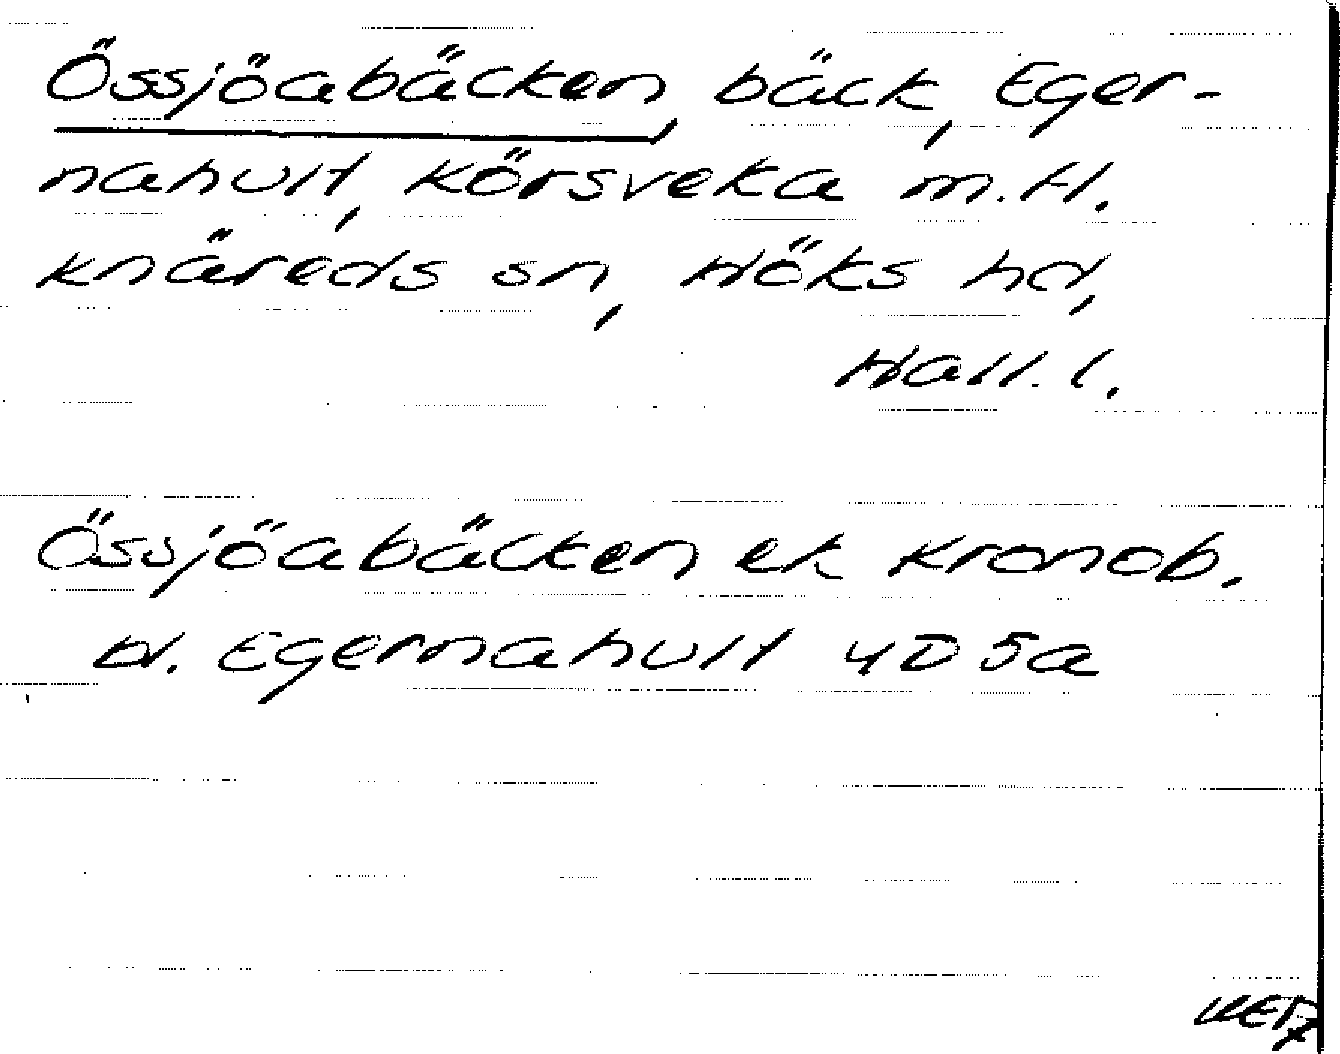 Össjöabäcken, bäck, Eger-
nahult, Körsveka m.fl.
Knäreds sn, Höks hd,
Hall. l.
Össjöabäcken ek Kronob.
bl. Egernahult 4D 5a